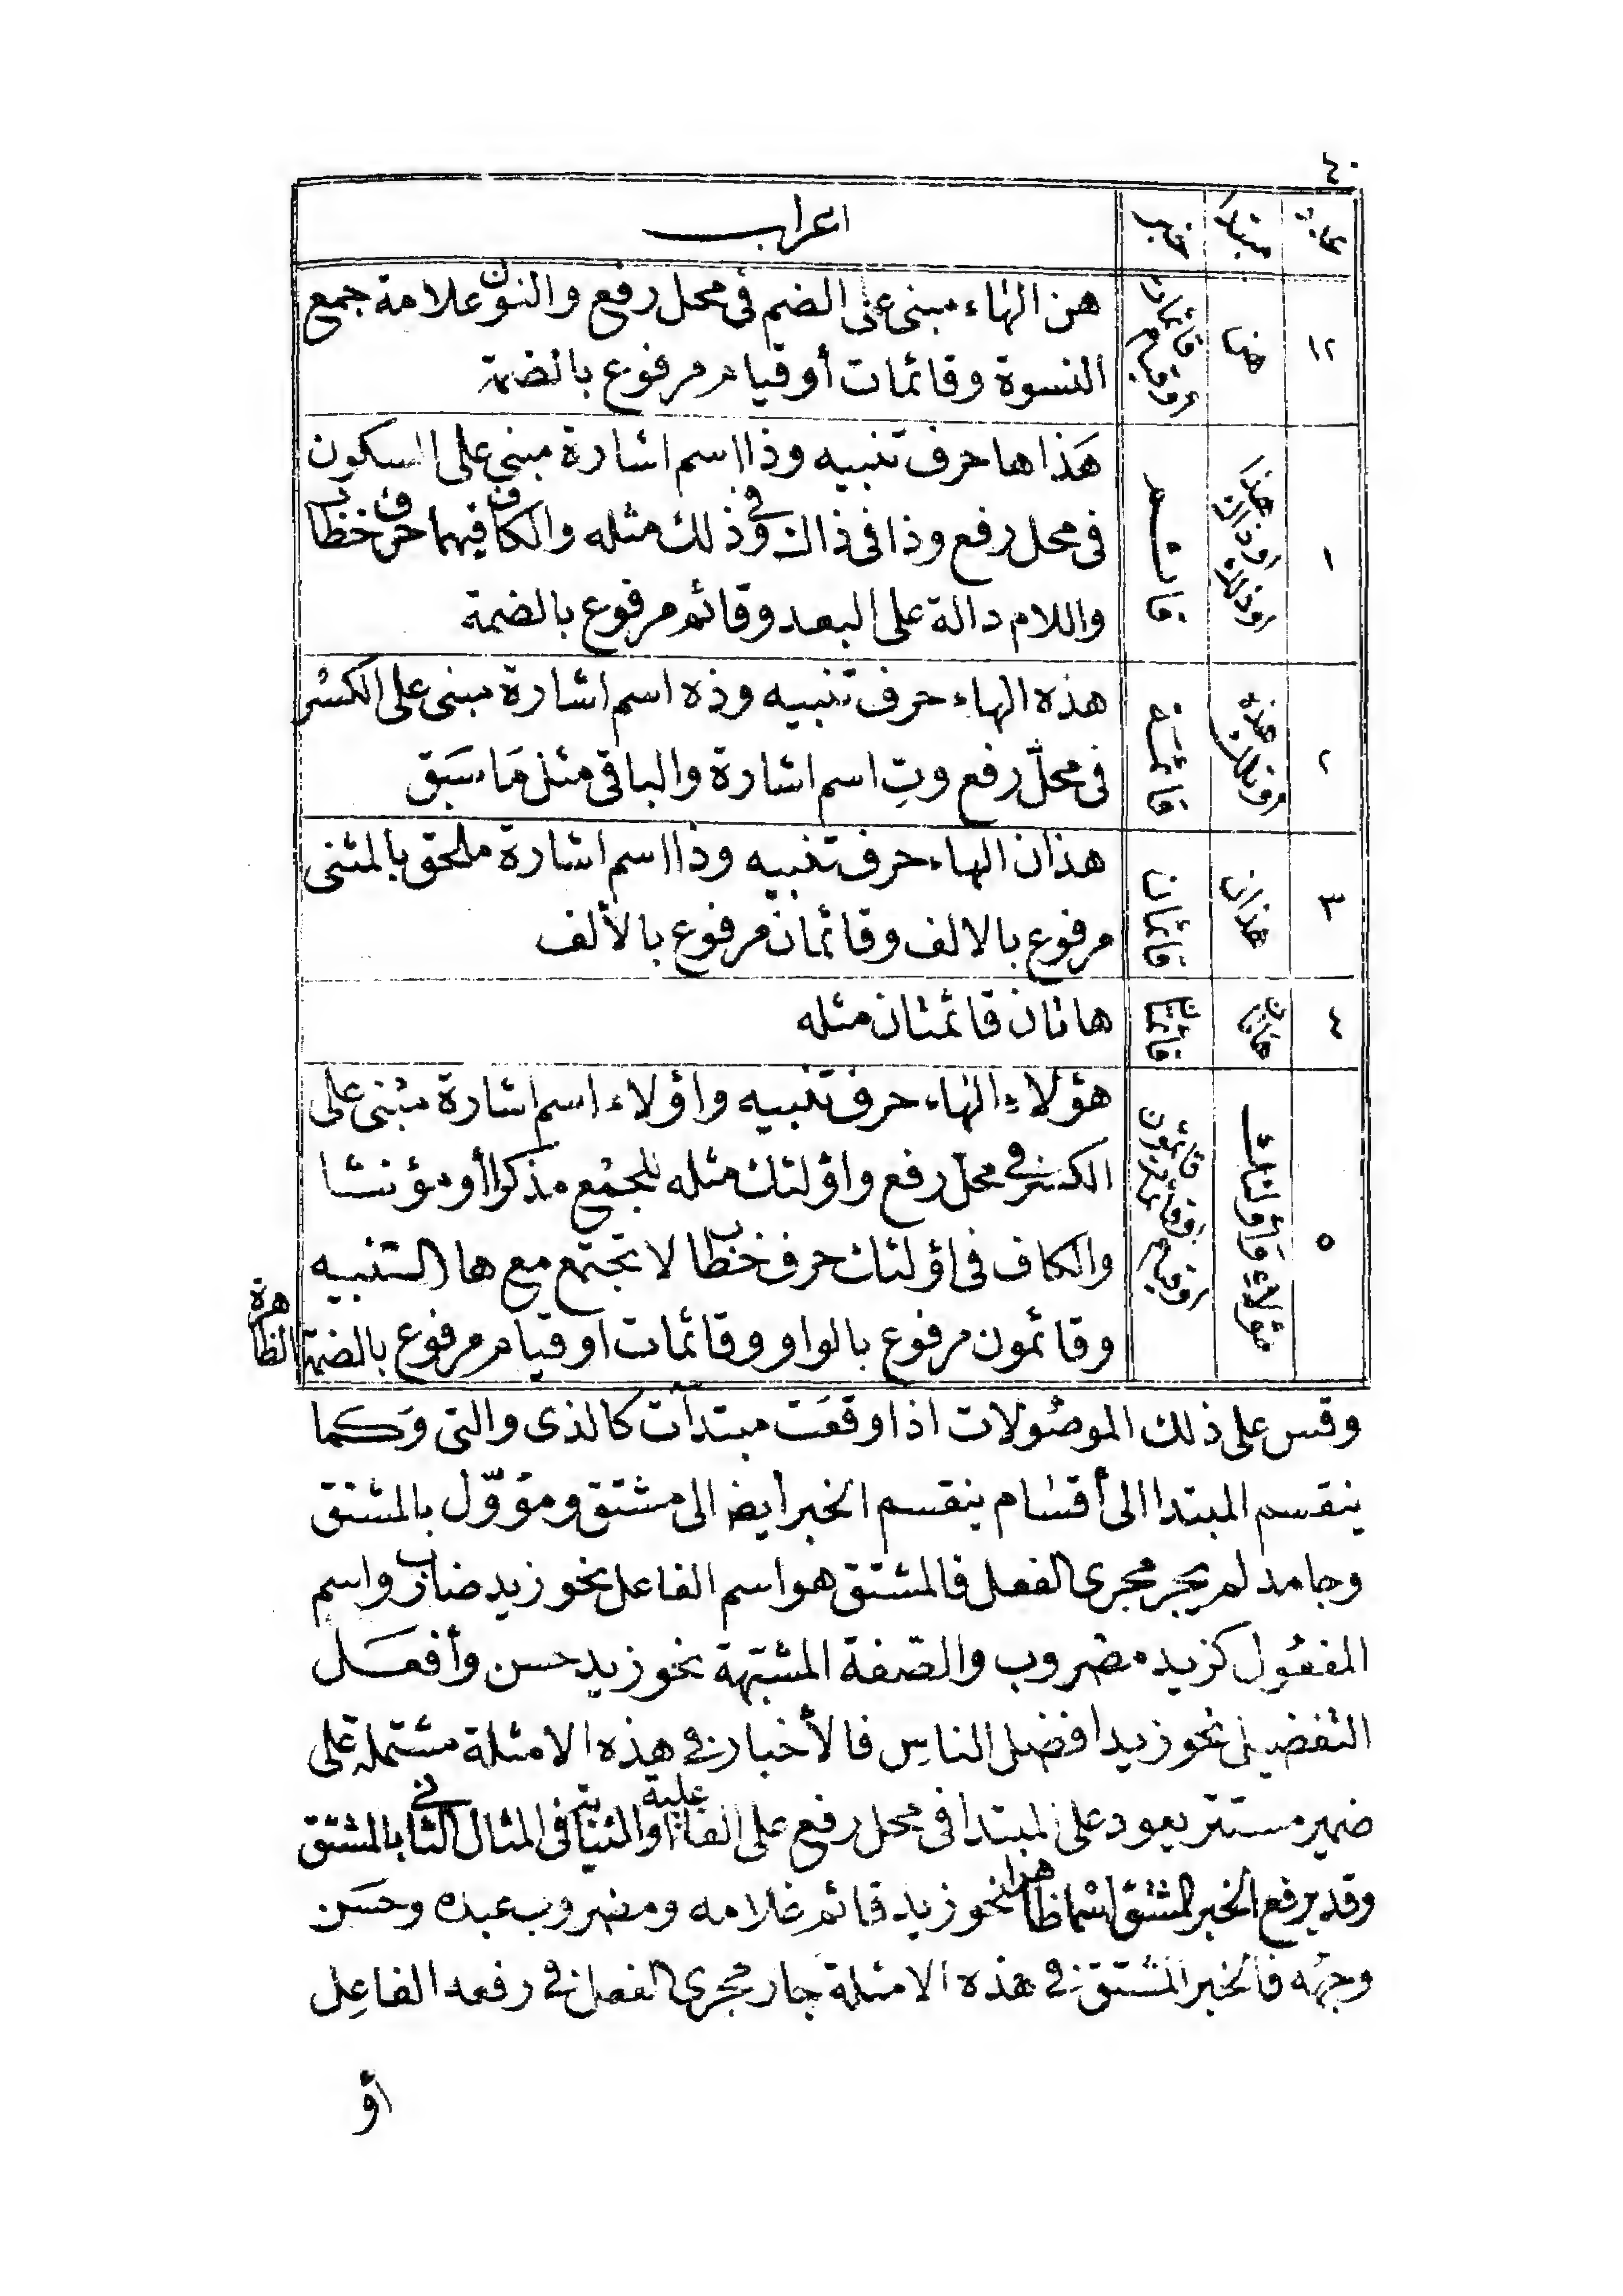 ٤٠
مبتدأ
خبر
اعراب
١٢
هن
قائمات
أو قيام
هن الهاء مبنى على الضم فى محل رفع والنون علامة جمع
النسوة وقائمات أو قيام مرفوع بالضمة
١
هذا
أو ذاك
أو ذلك
قائم
هَذا ها حرف تنبيه وذا اسم اشارة مبنى على السكون
فى محل رفع وذا فى ذاك وفى ذلك مثله والكاف فيهما حرف خطاب
واللام دالة على البعد وقائم مرفوع بالضمة
٢
هذه
أو تلك
قائمة
هذه الهاء حرف تنبيه وذه اسم اشارة مبنى على الكسر
فى محلّ رفع وتِ اسم اشارة والباقى مثل مَا سَبَق
٣
هذان
قائمان
هذان الهاء حرف تنبيه وذا اسم اشارة ملحق بالمثنى
مرفوع بالالف وقائمان مرفوع بالألف
٤
هاتان
قائمتان
هاتان قائمتان مثله
٥
هؤلاءِ وَأولئك
قائمون
أو قائمات
أو قيام
هؤلاءِ الهاء حرف تنبيه واؤلاء اسم اشارة مبنى على
الكسر فى محل رفع واؤلئك مثله للجمع مذكرا أو مؤنثا
والكاف فى اؤلئك حرف خطاب لا تجتمع مع ها التنبيه
وقائمون مرفوع بالواو وقائمات او قيام مرفوع بالضمة الظاهرة
وقس على ذلك الموصُولات اذا وقعَت مبتدآت كالذى والتى وَكما
ينقسم المبتدا الى أقسَام ينقسم الخبر أيضا الى مشتق ومؤوّل بالمشتق
وجامد لم يجر مجرى الفعل فالمشتق هو اسم الفاعل نحو زيد ضارب واسم
المفعُول كزيد مضروب والصّفة المشبّهة نحو زيد حسن وأفعَل
التفضيل نحو زيد افضل الناسِ فالأخبار فى هذه الامثلة مشتملة على
ضمير مستتر يعود على المبتدا فى محل رفع على الفاعلية او النيابة فى المثال الثانى بالمشتق
وقد يرفع الخبر المشتق اسْما ظاهرا نحو زيد قائم غلامه ومضروب عبده وحسَن
وجهُه فالخبر المشتق فى هذه الامثلة جار مجرى الفعل فى رفعه الفاعِل
أو